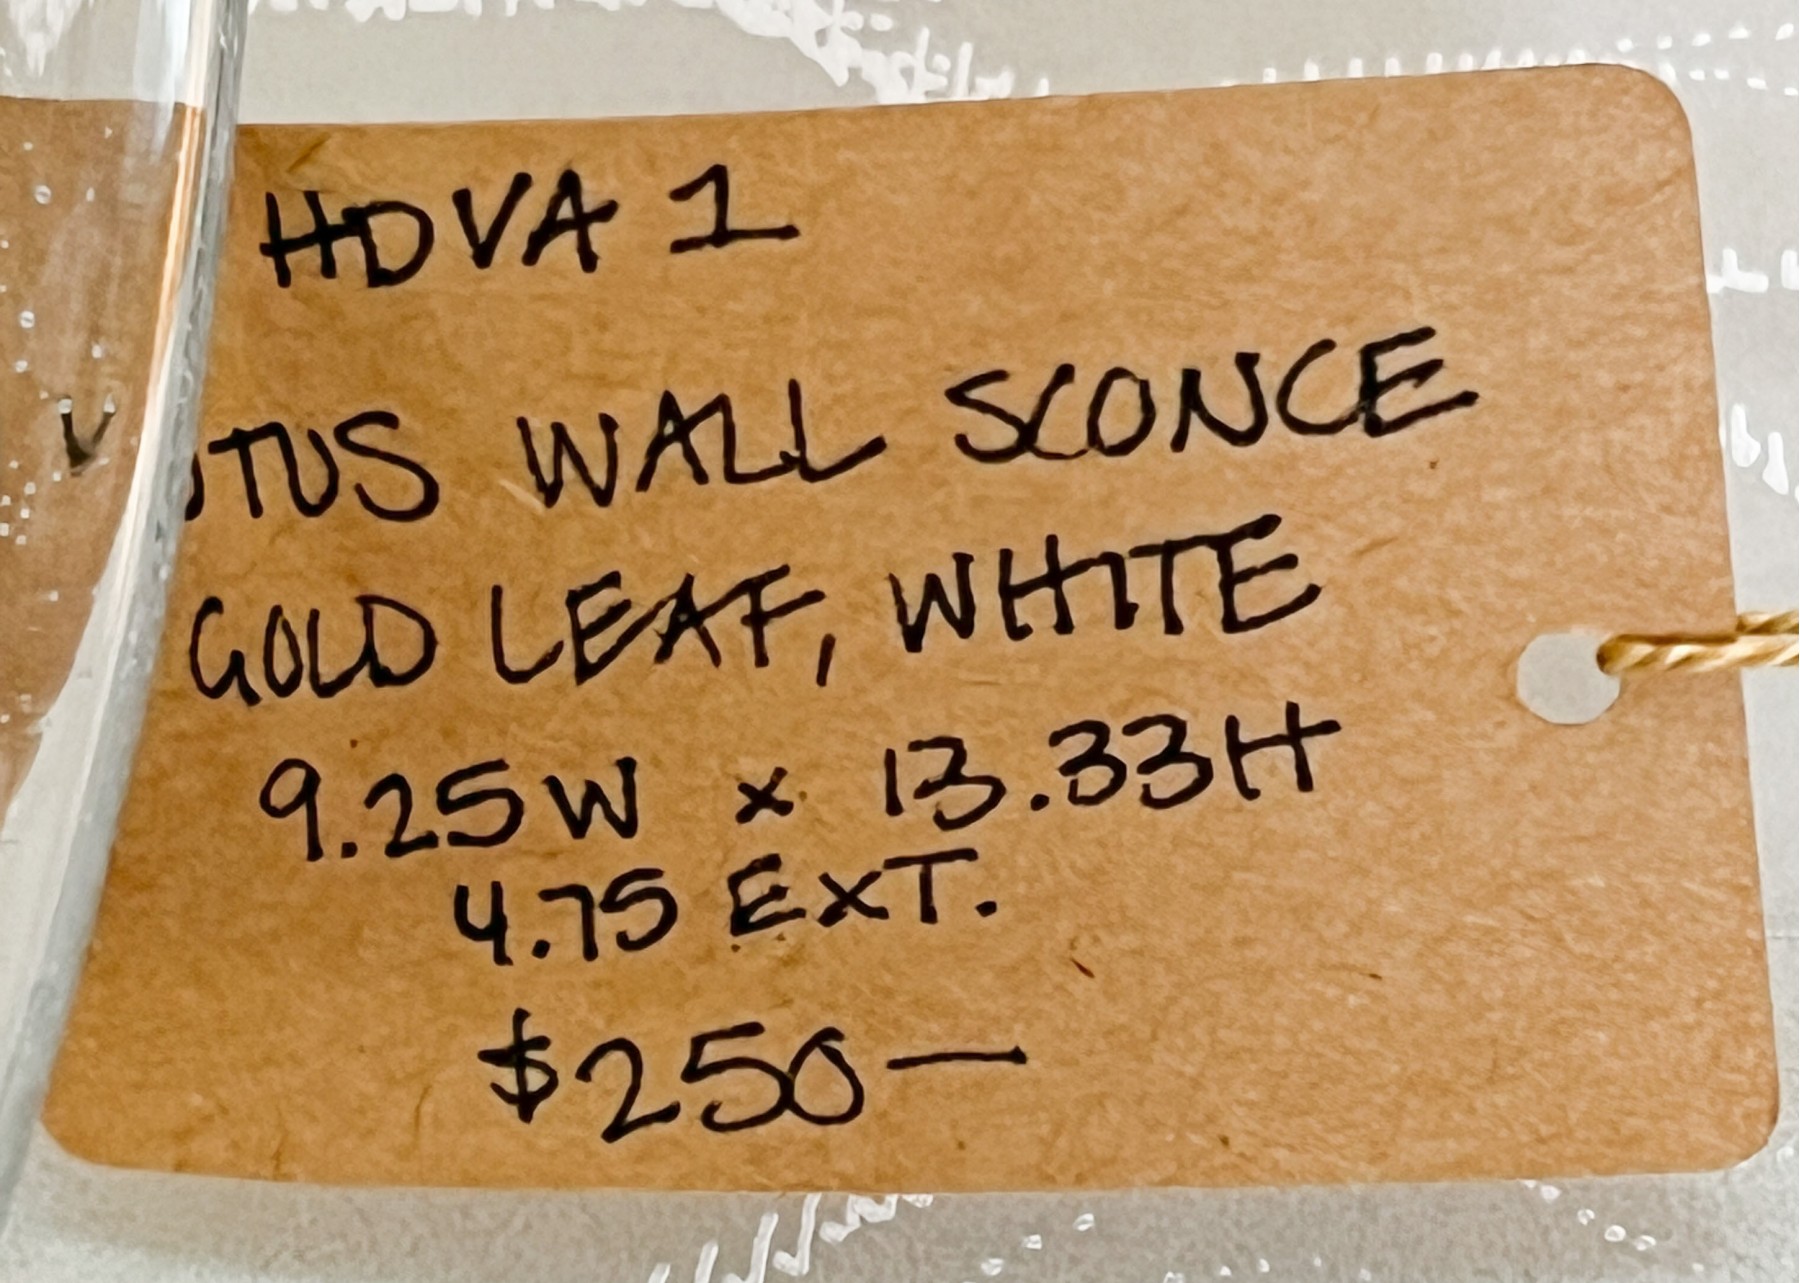 HDVA 1
WALL SCONCE
GOLD LEAF, WHITE
9.25W x 13.33H
4.75 EXT.
$250—